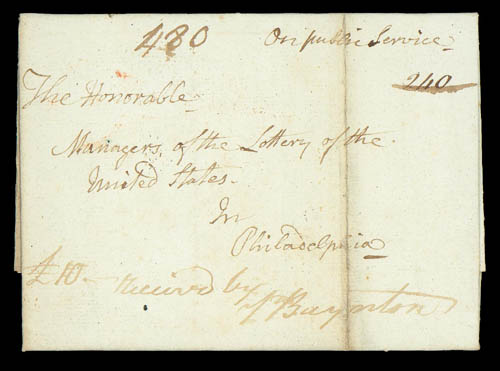 480 On public Service
240
The Honorable
Managers of the Lottery of the
United States.
In
Philadelphia
£10 - received by
Baynton